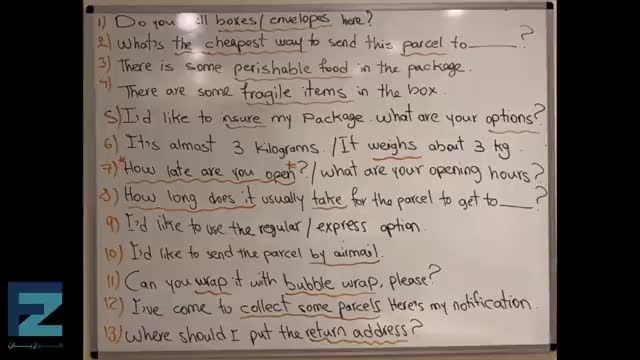 1) Do you sell boxes/envelopes here?
2) What's the cheapest way to send this parcel to_____?
3) There is some perishable food in the package.
4) There are some fragile items in the box.
5) I'd like to insure my package. What are your options?
6) It's almost 3 kilograms. /It weighs about 3 kg.
7) *How late are you open*?/What are your opening hours?
8) How long does it usually take for the parcel to get to____?
9) I'd like to use the regular/express option.
10) I'd like to send the parcel by airmail.
11) Can you wrap it with bubble wrap, please?
12) I've come to collect some parcels Here's my notification.
13) Where should I put the return address?